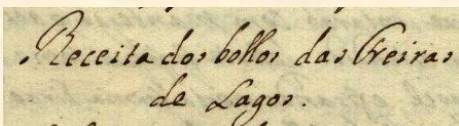 Receita dos bollos das Freiras
de Lagos.